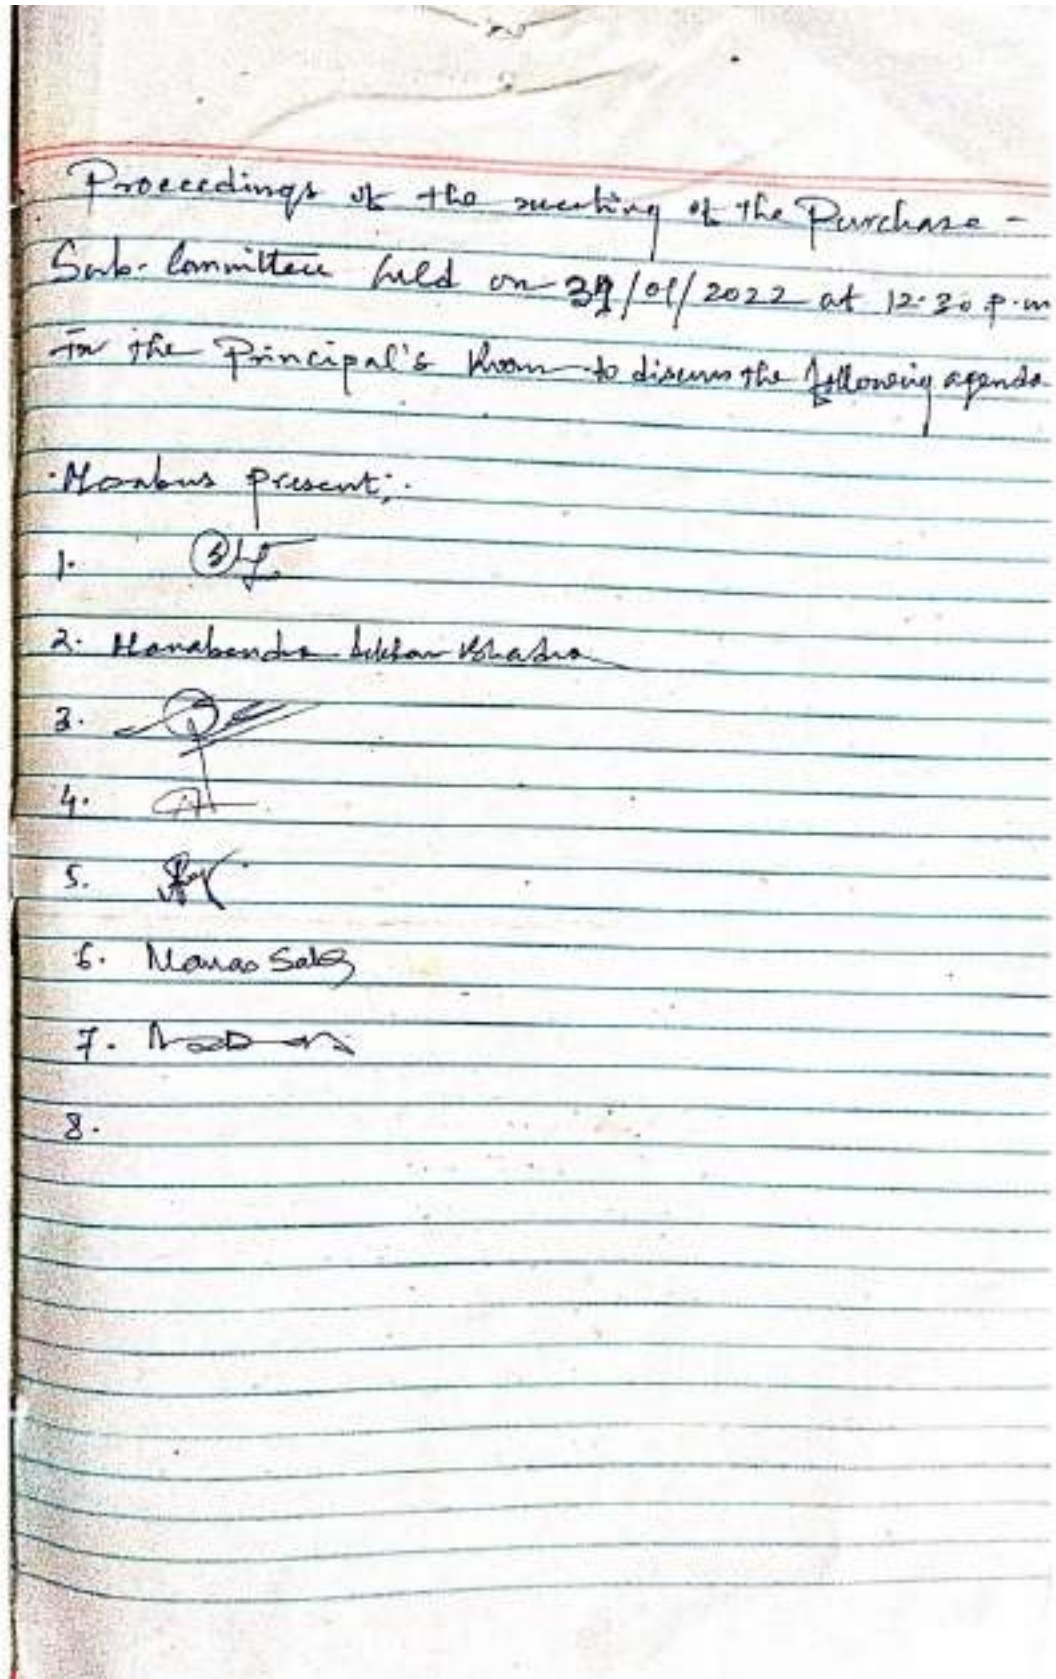 Proceedings of the meeting of the Purchase -
Sub-Committee held on 31/01/2022 at 12.30 p.m
In the Principal's Room to discuss the following agenda
Members present;.
1.
2. Manabendra Sekhar Bhadra
3.
4.
5.
6. Manas
7.
8.